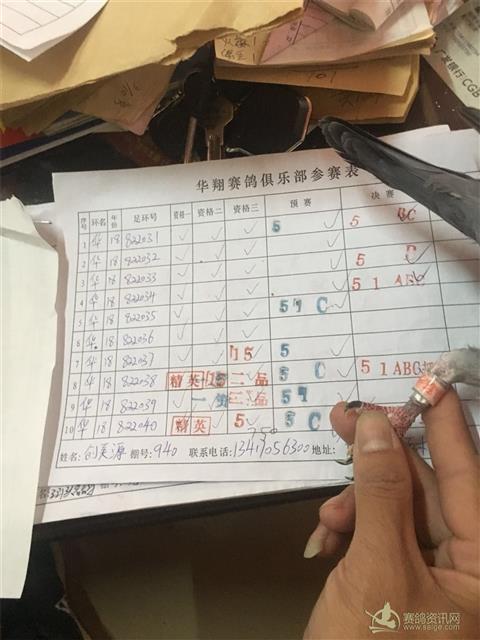 广发银行 CGB
华翔赛鸽俱乐部参赛表
序号 环名 年份 足环号 资格一 资格二 资格三 预赛 决赛
1 华 18 822031 ✓ ✓ ✓ 5 ✓ 5 BC
2 华 18 822032 ✓ ✓ ✓ ✓ 5
3 华 18 822033 ✓ ✓ ✓ ✓ 5 1 ABC
4 华 18 822034 ✓ ✓ ✓
5 华 18 822035 ✓ ✓ ✓ 5 1 C ✓
6 华 18 822036 ✓ ✓ ✓
7 华 18 822037 ✓ ✓ 15 5 ✓
8 华 18 822038 精英 二品 5 C ✓ 5 1 ABC
9 华 18 822039 ✓ 二品 ✓
10 华 18 822040 精英 5 ✓ 5 C ✓
姓名: 棚号: 940 联系电话: 地址:
赛鸽资讯网
www.saige.com